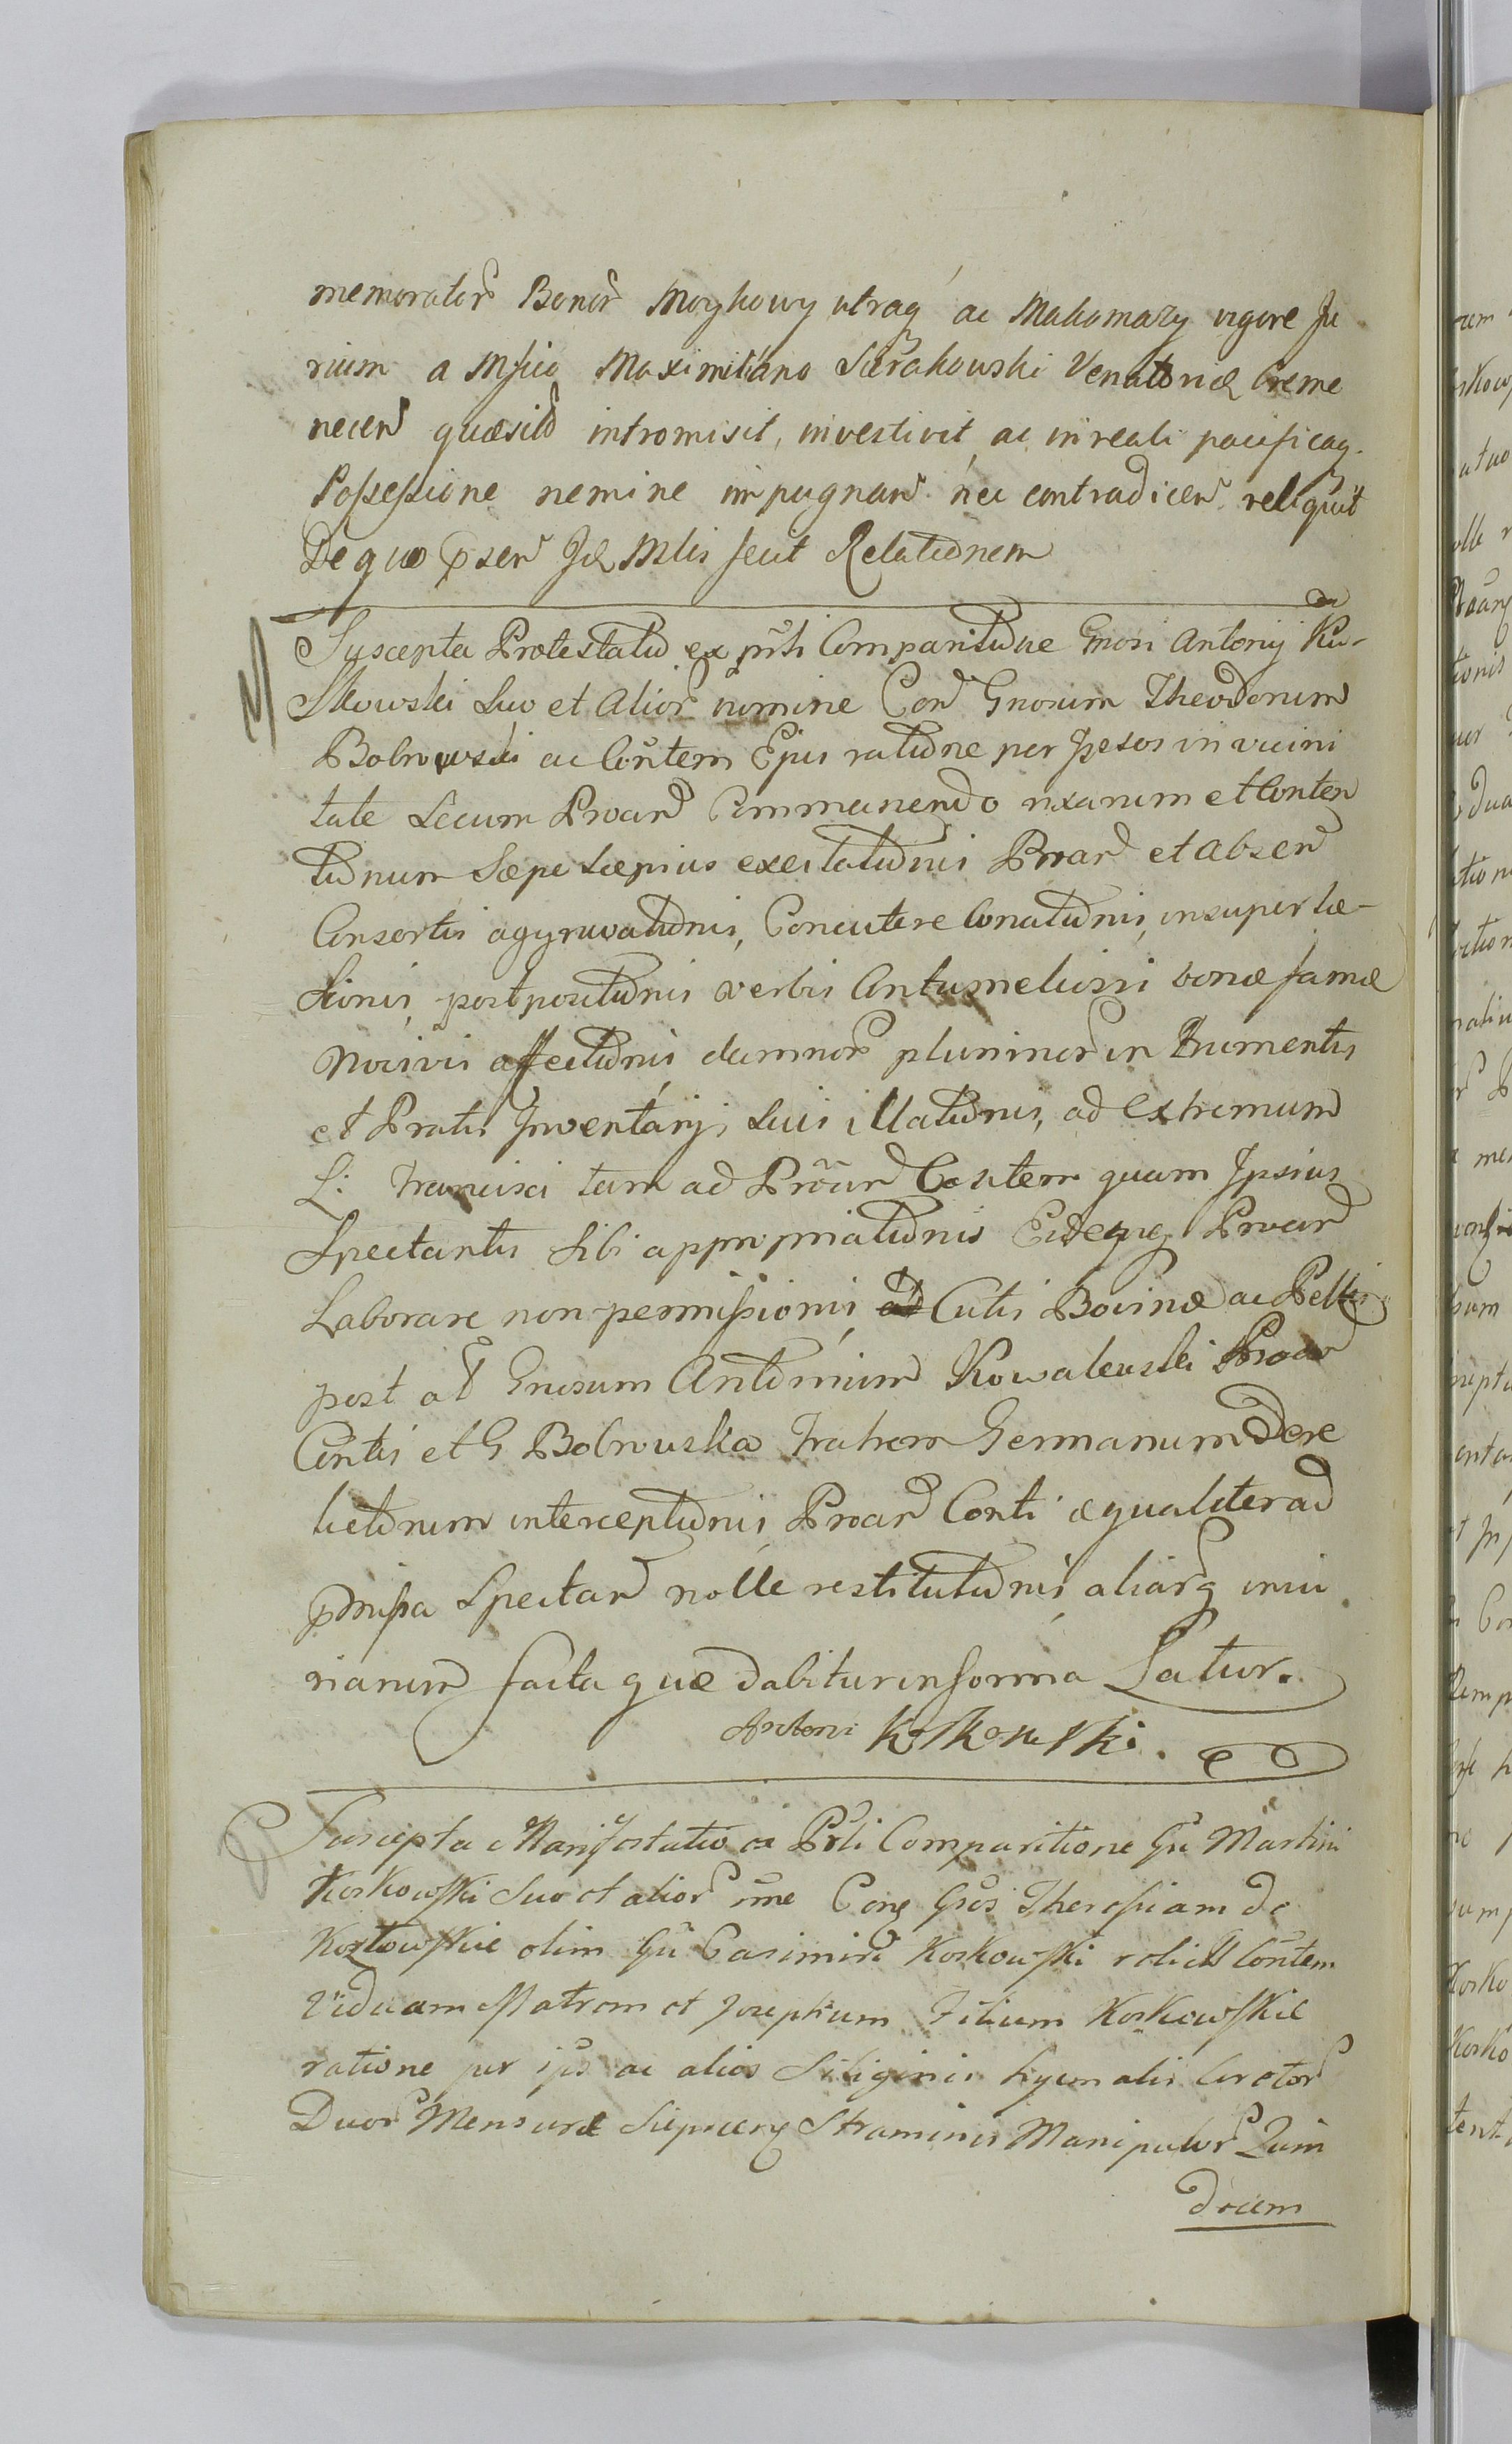 memorator Bonor Moykowy utraq ac Makomazy vigore Ju
rium a Mfico Maximiliano Sierakowski Venatoriæ Creme
necen quæsit intromisit, investivit, ac in reali pacificaq
Possessione nemine impugnan nec contradicen reliquit
De quo psen Jd Mlis fecit Relationem
Suscepta Protestatio ex psti Comparitione Gnosi Antonij Ko-
Skowski Suo et Alior nomine Con Gnosum Theodorum
Bobrowski ac Contem Ejus ratione per Ipsos in vicini
tate Secum Proan Commanendo rixarum et Conten
tionum Sæpe Sæpius excitationis Proan et Absen
Consortis aggravationis, Concutere Conationis, insuper læ-
sionis, postpositionis verbis Contumeliosis bonæ famæ
Nocivis affectionis damnor plurimor in Frumentis
et Pratis Inventarij Sui illationis, ad Extremum
L: Francisci tam ad Proan Contem quam Ipsius
Spectantis Sibi appropriationis Eideque Proan
Laborare non permissionis, Cutis Bovinæ ac Pellis
post ol Gnosum Antonium Kowalewski Proan
Contis et G Bobrowska Fratrem Germanum Dere
lictorum interceptionis Proan Conti æqualiter ad
pmissa Spectan nolle restitutionis aliarq iniu
riarum facta quæ dabitur in forma Latur.
Antoni Koskowski.
Suscepta Manifestatio ex Psti Comparitione Gsi Martini
Koskowski Suo et alior nne Con Gsos Theresiam de
Kozłowskie olim Gsi Casimiri Koskowski relict Contem
Viduam Matrem et Josephum Filium Koskowskie
ratione per ipsos ac alios Siliginis hyemalis Coretor
Duor Mensuræ Straminis Manipulor Quin
decem